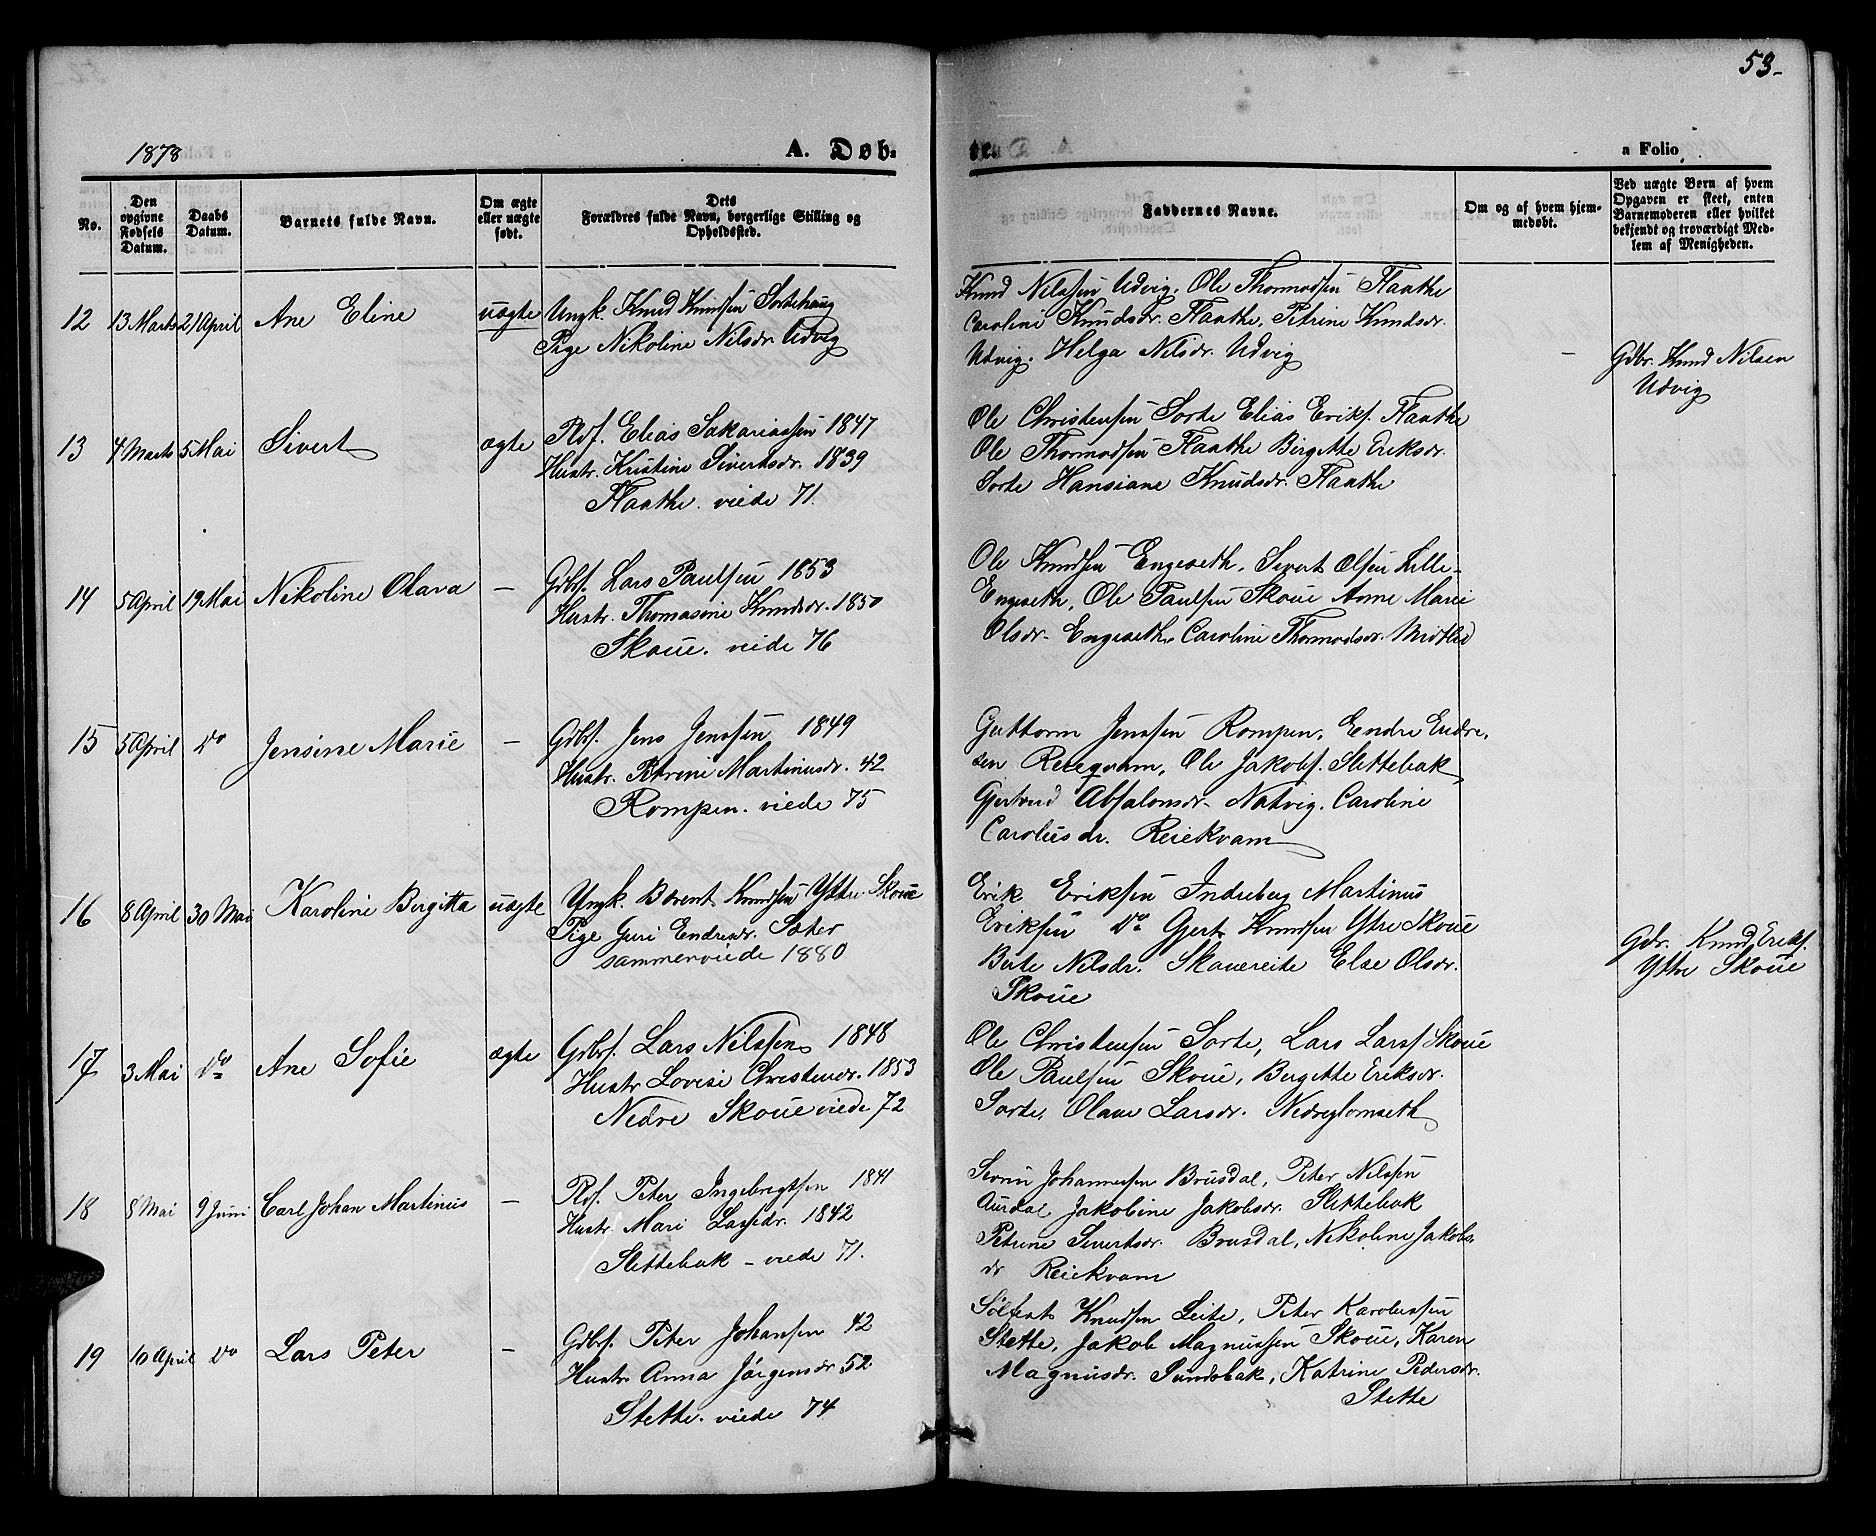 53-
1878
A. Døb-
te.
a Folio
No.
Den opgivne Fødsels Datum.
Daabs Datum.
Barnets fulde Navn.
Om ægte eller uægte født.
Dets Forældres fulde Navn, borgerlige Stilling og Opholdssted.
Faddernes Navne.
Om og af hvem hjemmedøbt.
Ved uægte Børn af hvem Opgaven er skeet, enten Barnemoderen eller hvilket bekjendt og troværdigt Medlem af Menigheden.
12 13 Marts 21 April Ane Eline uægte Ungk. Knud Knudsen Sortehaug
Pige Nikoline Nilsdr. Udvig
Knud Nilssen Udvig, Ole Thormodsen Flaathe
Caroline Knudsdr. Flaathe, Petrine Knudsdr.
Udvig. Helga Nilsdr. Udvig
-
Gdbr. Knud Nilsen
Udvig
13 4 Marts 5 Mai Sivert ægte Rdf. Elias Sakariassen 1847
Hustr. Kristine Sivertsdr. 1839
Flaathe. viede 71.
Ole Christensen Sorte Elias Eriks. Flaathe
Ole Thormodsen Flaathe Birgitte Eriksdr.
Sorte Hansiane Knudsdr. Flaathe
14 5 April 19 Mai Nikoline Olava - Gdbf. Lars Paulsen 1853
Hustr. Thomasine Knudsdr. 1850
Skoue. viede 76
Ole Knudsen Engeseth, Sivert Olsen Lille-
Engeseth, Ole Paulsen Skoue Anne Marie
Olsdr. Engeseth, Caroline Thormodsdr. Midtlid
15 5 April do Jensine Marie - Gdbf. Jens Jenssen 1849
Hustr. Petrine Martinusdr. 42
Rompen. viede 75
Guttorm Jenssen Rompen, Endre Endre-
sen Reieqvam, Ole Jakobs. Slettebak
Gjertrud Absalonsdr. Natvig. Caroline
Carolusdr. Reiekvam
16 8 April 30 Mai Karoline Bergitta uægte Ungk. Bærent Knudsen Yttre Skoue
Pige Guri Endresdr. Sæter
sammenviede 1880
Erik Eriksen Indreberg Martinus
Eriksen do Gjert Knudsen Ytre Skoue
Berte Nilsdr. Skouereite Else Olsdr.
Skoue
Gdr. Knud Eriks.
Ytre Skoue
17 3 Mai do Ane Sofie ægte Gdbf. Lars Nilssen 1848
Hustr Lovise Christensdr. 1853
Nedre Skoue viede 72
Ole Christensen Sorte, Lars Larss Skoue
Ole Paulsen Skoue, Bergitte Eriksdr.
Sorte, Olave Larsdr. Nedreglomseth
18 8 Mai 9 Juni Carl Johan Martinus - Rdf. Peter Ingebrigtsen 1841
Hustr. Mari Lassedr. 1842
Slettebak - viede 71.
Johannessen Brusdal, Peter Nilssen
Aurdal Jakobine Jakobsdr. Slettebak
Petrine Sivertsdr. Brusdal, Nikoline Jakobs-
dr Reiekvam
19 10 April do Lars Peter - Gdbf. Peter Johansen 42
Hustr Anna Jørgensdr 52
Stette. viede 74
Sølfest Knudsen Leite, Peter Karolussen
Stette, Jakob Magnussen Skoue, Karen
Magnusdr. Sundsbak, Katrine Pedersdr.
Stette